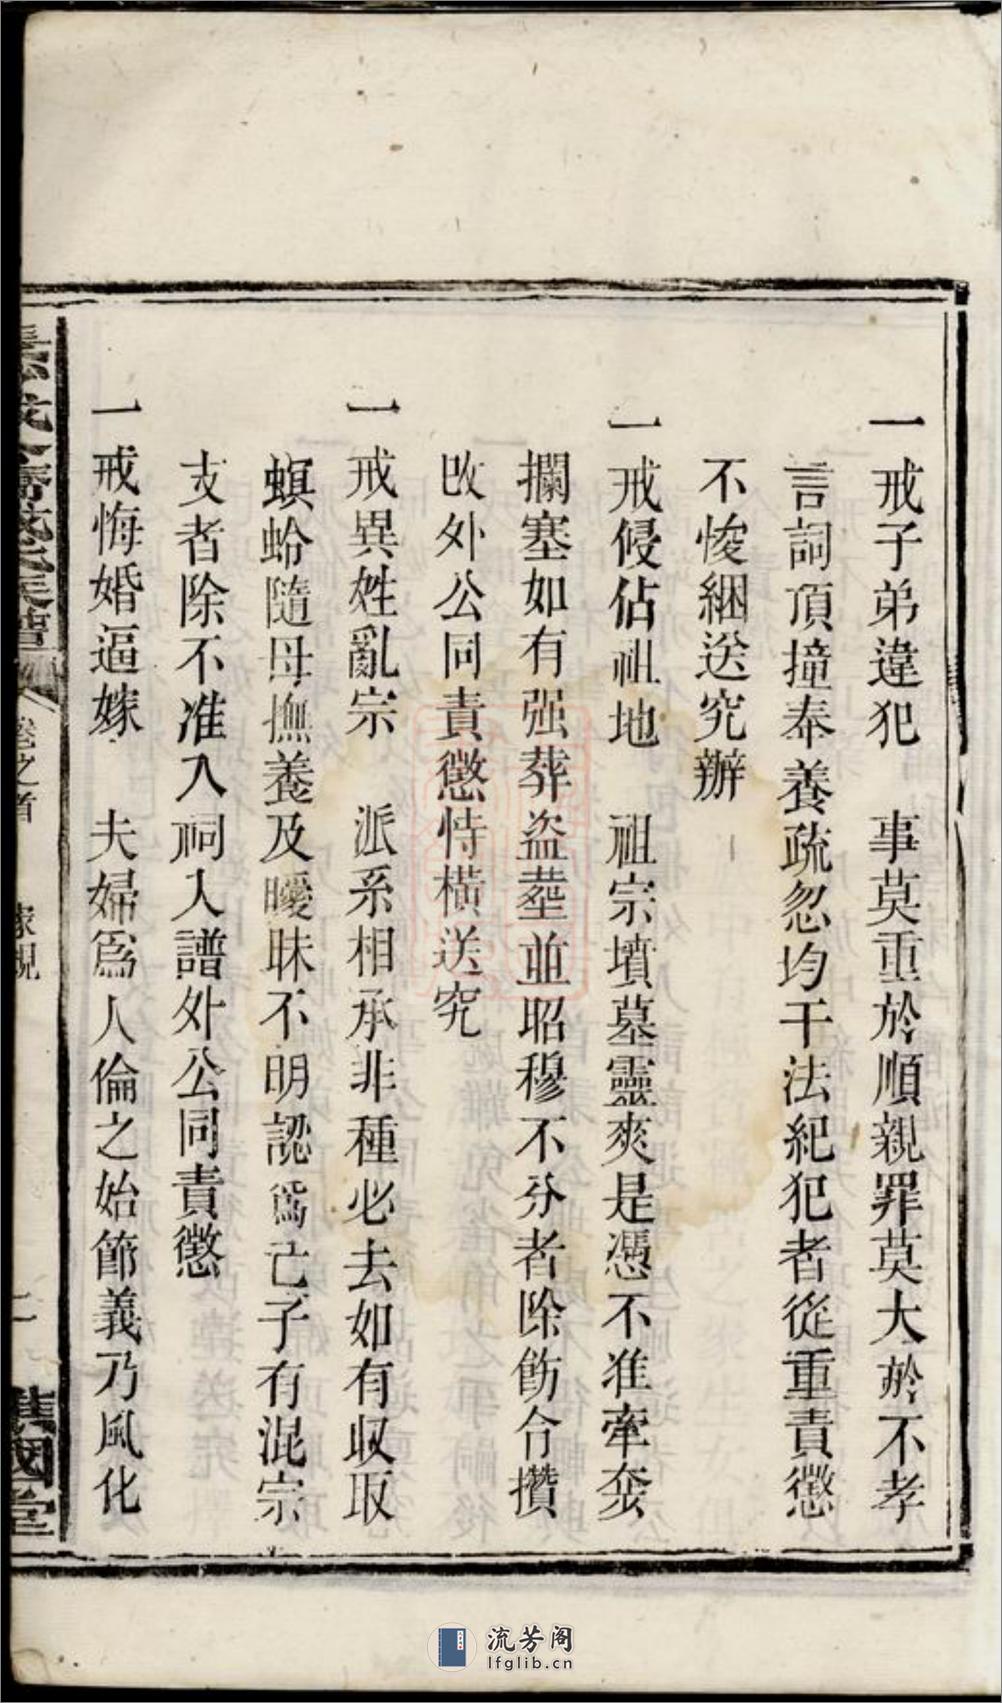 一戒子弟違犯　事莫重於順親罪莫大於不孝
言詞頂撞奉養疏忽均干法紀犯者從重責懲
不悛綑送究辦
一戒侵佔祖地　祖宗墳墓靈爽是憑不准牽奕
攔塞如有强葬盗塟並昭穆不分者除飭合攢
改外公同責懲恃橫送究
一戒異姓亂宗　派系相承非種必去如有収取
螟蛉隨母撫養及曖昧不明認爲亡子有混宗
支者除不准入祠入譜外公同責懲
一戒悔婚逼嫁　夫婦爲人倫之始節義乃風化
卷之首　家規　二
流芳阁
lfglib.cn